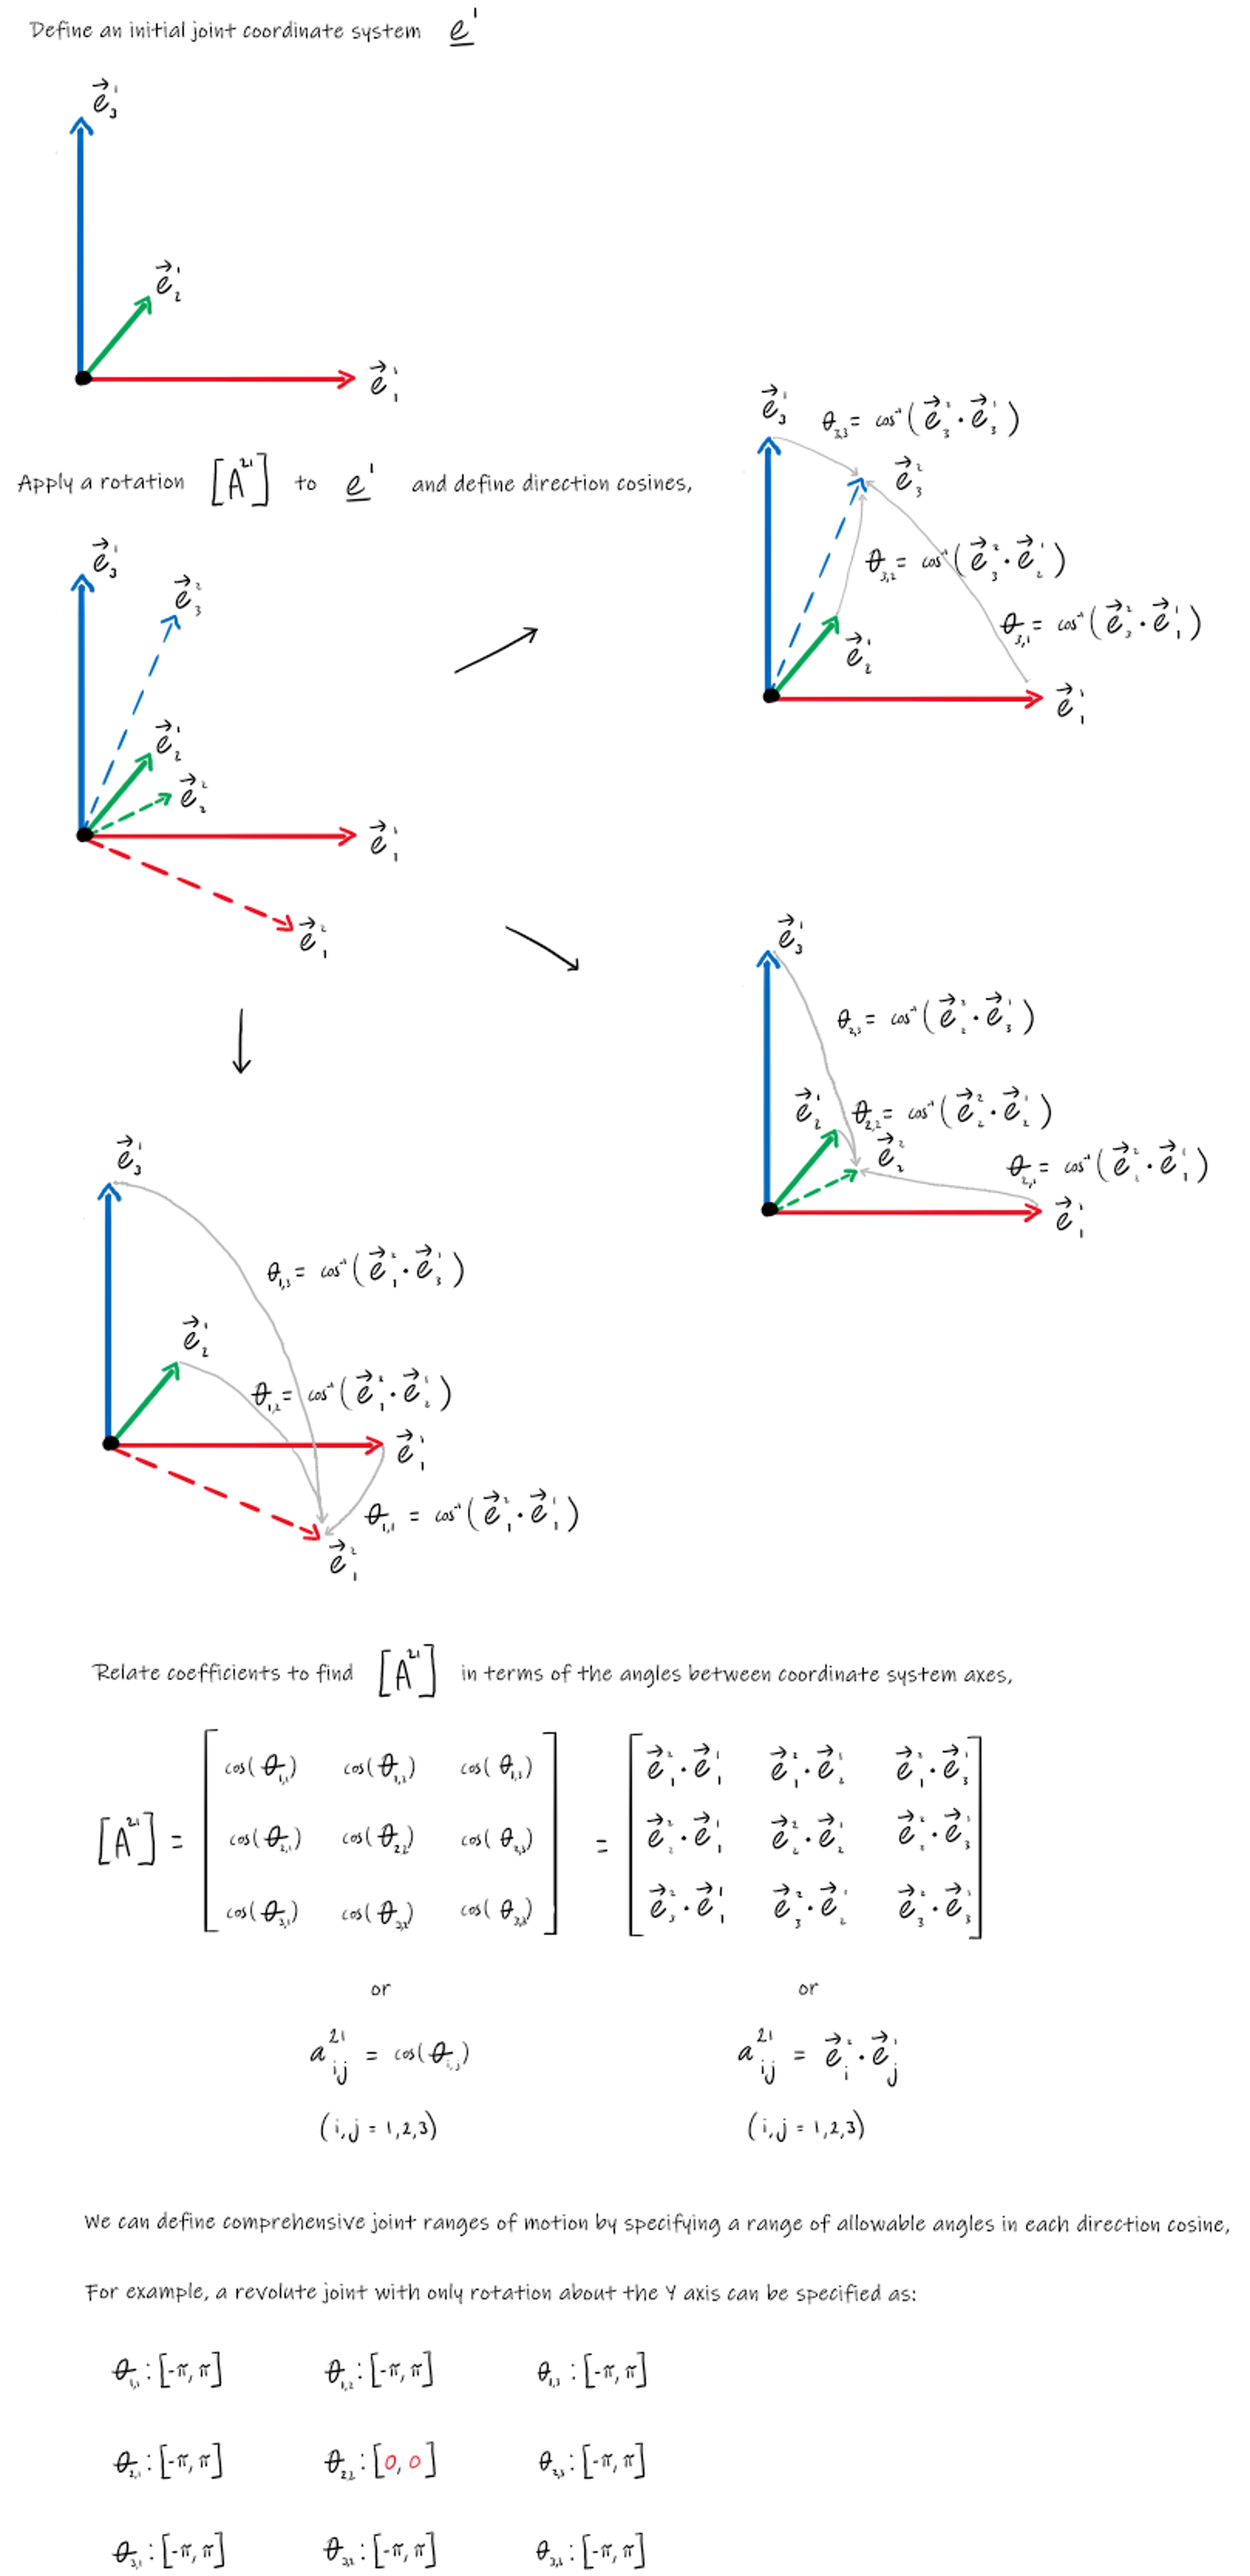 Define an initial joint coordinate system e¹
e⃗₃¹
e⃗₂¹
e⃗₁¹
Apply a rotation [A²¹] to e¹ and define direction cosines,
e⃗₃¹
e⃗₃²
e⃗₂¹
e⃗₂²
e⃗₁¹
e⃗₁²
e⃗₃¹ θ₃,₃ = cos⁻¹(e⃗₃² · e⃗₃¹)
e⃗₃²
θ₃,₂ = cos⁻¹(e⃗₃² · e⃗₂¹)
θ₃,₁ = cos⁻¹(e⃗₃² · e⃗₁¹)
e⃗₂¹
e⃗₁¹
e⃗₃¹
θ₂,₃ = cos⁻¹(e⃗₂² · e⃗₃¹)
e⃗₂¹ θ₂,₂ = cos⁻¹(e⃗₂² · e⃗₂¹)
e⃗₂²
θ₂,₁ = cos⁻¹(e⃗₂² · e⃗₁¹)
e⃗₁¹
e⃗₃¹
θ₁,₃ = cos⁻¹(e⃗₁² · e⃗₃¹)
e⃗₂¹
θ₁,₂ = cos⁻¹(e⃗₁² · e⃗₂¹)
e⃗₁¹
θ₁,₁ = cos⁻¹(e⃗₁² · e⃗₁¹)
e⃗₁²
Relate coefficients to find [A²¹] in terms of the angles between coordinate system axes,
cos(θ₁,₁) cos(θ₁,₂) cos(θ₁,₃) e⃗₁² · e⃗₁¹ e⃗₁² · e⃗₂¹ e⃗₁² · e⃗₃¹
[A²¹] = cos(θ₂,₁) cos(θ₂,₂) cos(θ₂,₃) = e⃗₂² · e⃗₁¹ e⃗₂² · e⃗₂¹ e⃗₂² · e⃗₃¹
cos(θ₃,₁) cos(θ₃,₂) cos(θ₃,₃) e⃗₃² · e⃗₁¹ e⃗₃² · e⃗₂¹ e⃗₃² · e⃗₃¹
or or
a²¹ᵢⱼ = cos(θᵢ,ⱼ) a²¹ᵢⱼ = e⃗ᵢ² · e⃗ⱼ¹
(i,j = 1,2,3) (i,j = 1,2,3)
We can define comprehensive joint ranges of motion by specifying a range of allowable angles in each direction cosine,
For example, a revolute joint with only rotation about the Y axis can be specified as:
θ₁,₁ : [-π, π] θ₁,₂ : [-π, π] θ₁,₃ : [-π, π]
θ₂,₁ : [-π, π] θ₂,₂ : [0, 0] θ₂,₃ : [-π, π]
θ₃,₁ : [-π, π] θ₃,₂ : [-π, π] θ₃,₃ : [-π, π]